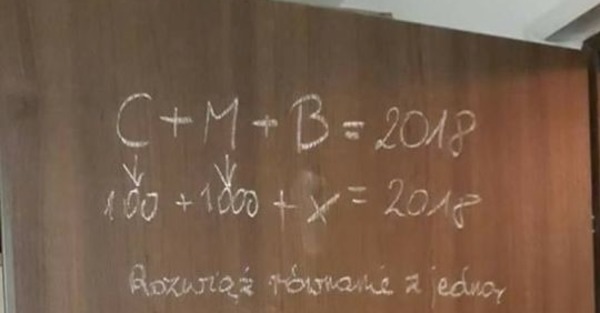 C + M + B = 2018
100 + 1000 + x = 2018
Rozwiąż równanie z jedną